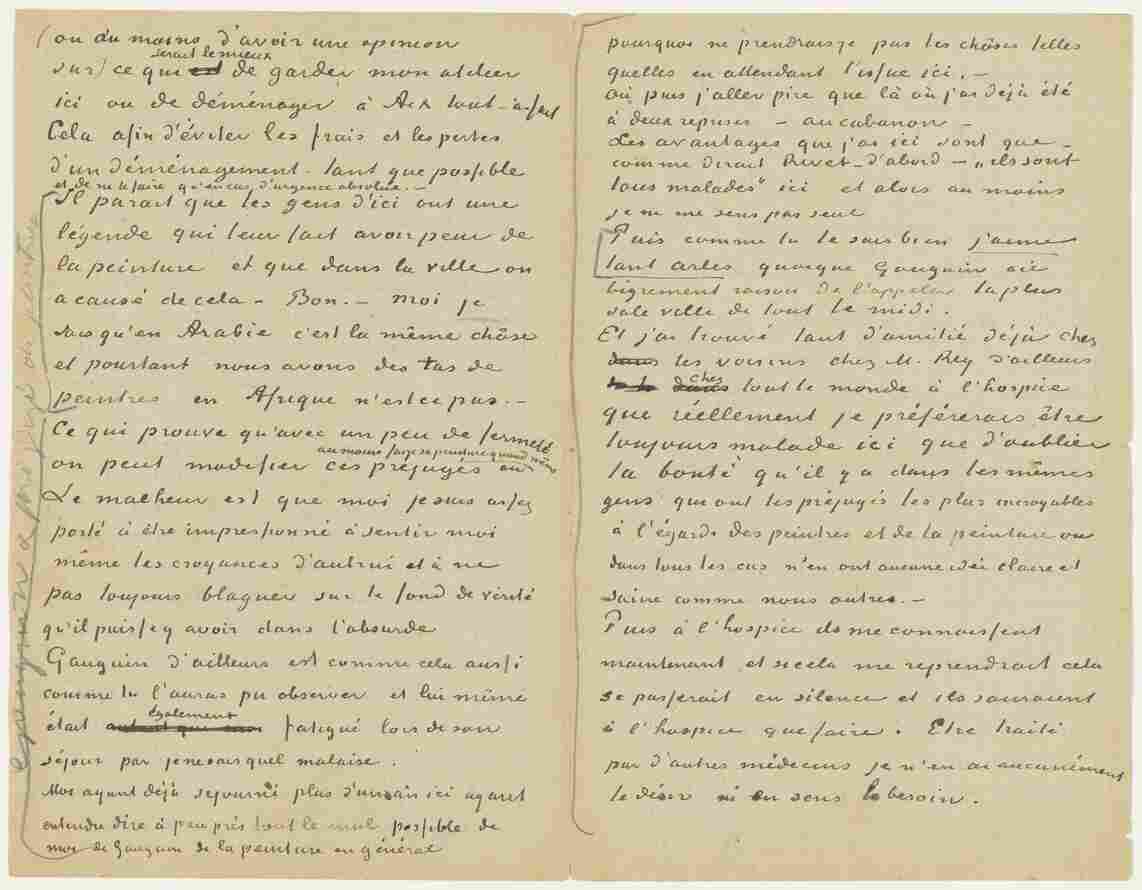 ou du moins d'avoir une opinion
serait le mieux
sur ce qui est de garder mon atelier
ici ou de déménager à Aix tout-à-fait
Cela afin d'éviter les frais et les pertes
d'un déménagement tant que possible
et de ne le faire qu'en cas d'urgence absolue. –
Il parait que les gens d'ici ont une
légende qui leur fait avoir peur de
la peinture et que dans la ville on
a causé de cela – Bon. – moi je
sais qu'en Arabie c'est la même chôse
et pourtant nous avons des tas de
peintres en Afrique n'est ce pas. –
Ce qui prouve qu'avec un peu de fermeté
on peut modifier ces préjugés ou
au moins faire sa peinture quand même
Le malheur est que moi je suis assez
porté à être impressionné à sentir moi
même les croyances d'autrui et à ne
pas toujours blaguer sur le fond de vérité
qu'il puisse y avoir dans l'absurde
Gauguin d'ailleurs est comme cela aussi
comme tu l'auras pu observer et lui même
également
était fatigué lors de son
séjour par je ne sais quel malaise.
Moi ayant déjà sejourné plus d'un an ici ayant
entendu dire à peu près tout le mal possible de
moi de Gauguin de la peinture en général
pourquoi ne prendrais je pas les chôses telles
quelles en attendant l'issue ici. –
Où puis j'aller pire que là où j'ai déjà été
à deux reprises – au cabanon –
Les avantages que j'ai ici sont que –
comme dirait Rivet – d'abord – „ils sont
tous malades" ici et alors au moins
je ne me sens pas seul
Puis comme tu le sais bien j'aime
tant arles quoique Gauguin aie
bigrement raison de l'appeler la plus
sale ville de tout le midi.
Et j'ai trouvé tant d'amitié déjà chez
dans les voisins chez M. Rey d'ailleurs
chez
dans tout le monde à l'hospice
que réellement je préférerais être
toujours malade ici que d'oublier
la bonté qu'il y a dans les mêmes
gens qui ont les préjugés les plus incroyables
à l'égard des peintres et de la peinture ou
dans tous les cas n'en ont aucune idée claire et
saine comme nous autres. –
Puis à l'hospice ils me connaissent
maintenant et si cela me reprendrait cela
se passerait en silence et ils sauraient
à l'hospice que faire. Etre traité
par d'autres médecins je n'en ai aucunément
le désir ni en sens le besoin.